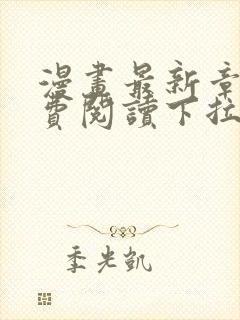 漫畫最新章
費閱讀下拉
季光凱